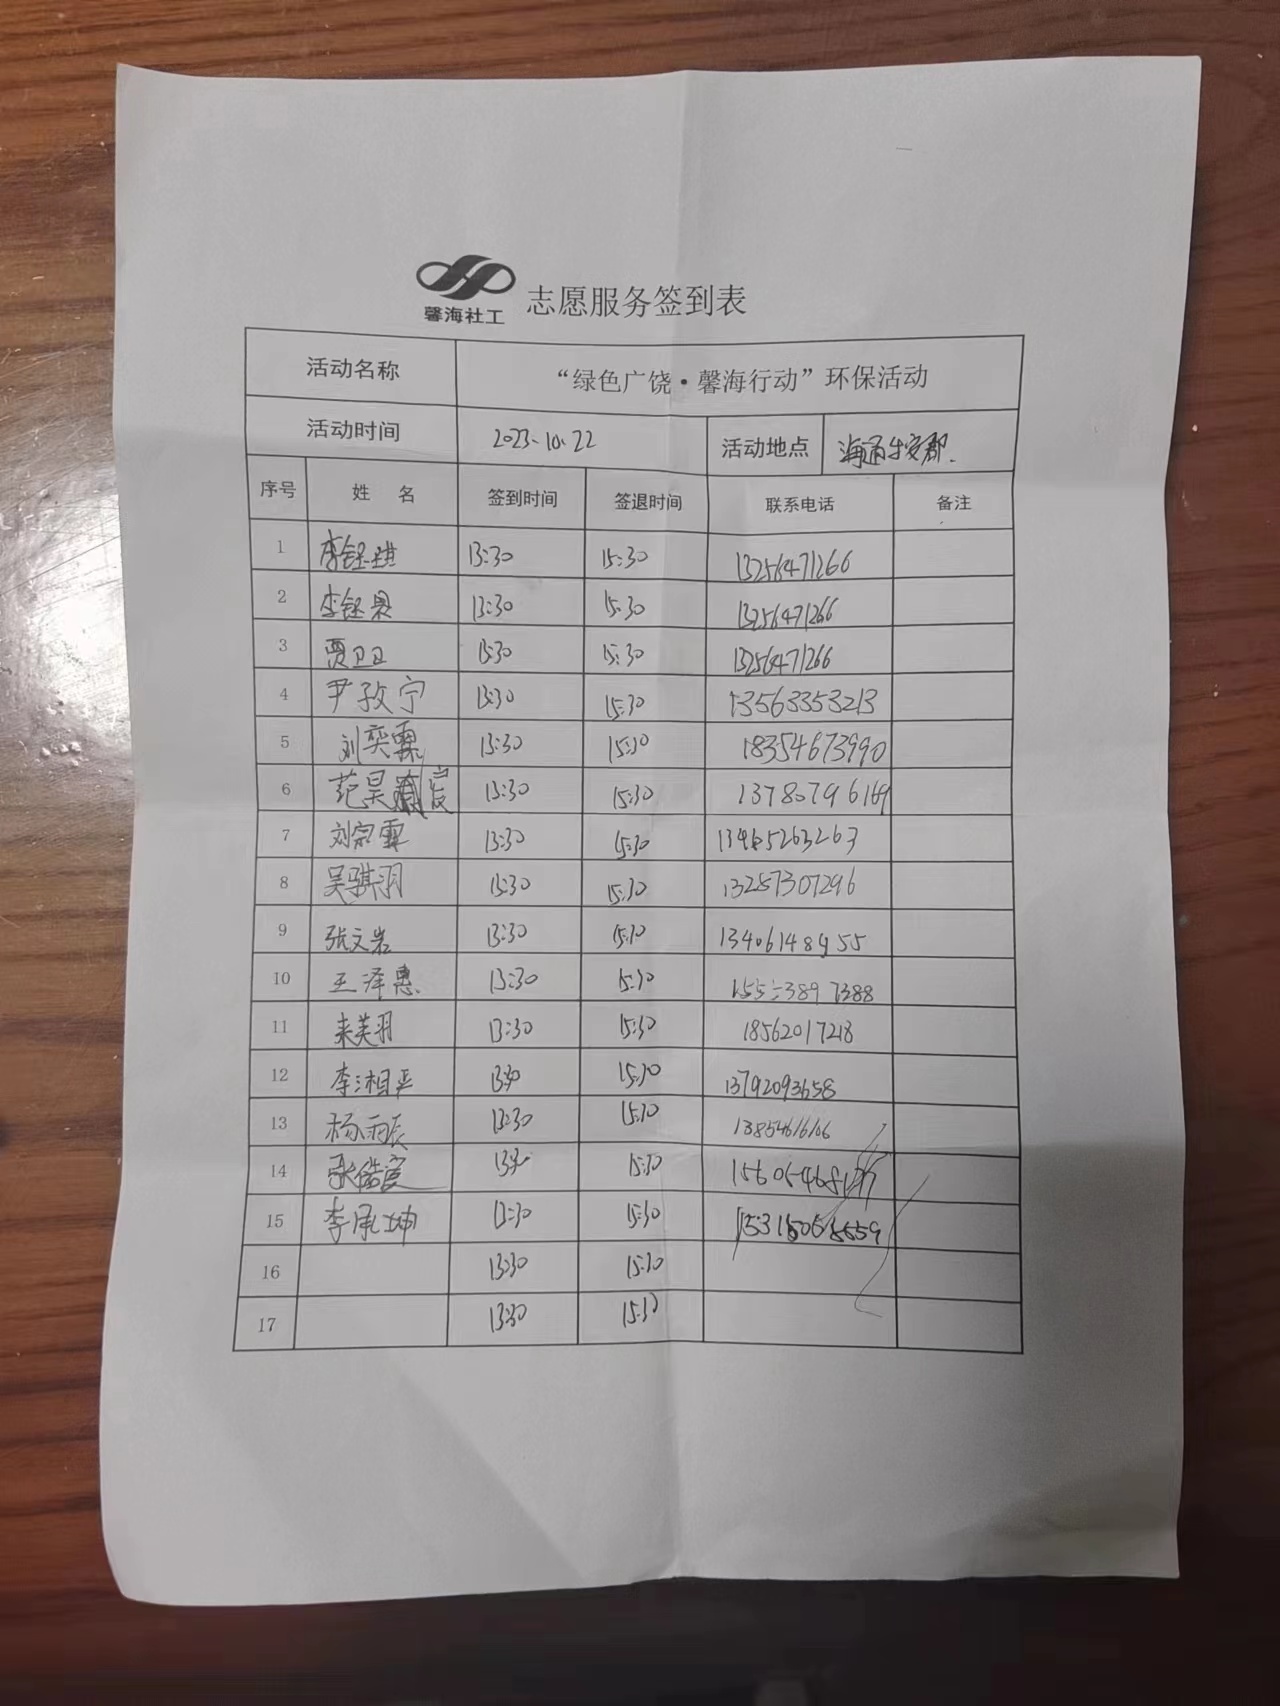 馨海社工 志愿服务签到表
活动名称 “绿色广饶·馨海行动”环保活动
活动时间 2023.10.22 活动地点 海通
序号 姓 名 签到时间 签退时间 联系电话 备注
1 李钰琪 13:30 15:30 13256471266
2 李钰 13:30 15:30 13256471266
3 贾卫卫 13:30 15:30 13256471266
4 尹孜宁 13:30 15:30 13563353213
5 刘奕霖 13:30 15:30 18354673990
6 范昊宸 13:30 15:30 13780796169
7 刘宗霖 13:30 15:30 13465263263
8 吴骐羽 13:30 15:30 13287307296
9 张文岩 13:30 15:30 13406148955
10 王泽惠 13:30 15:30
11 来美羽 13:30 15:30 18562017218
12 李湘平 13:30 15:30 13792093658
13 杨雨辰 13:30 15:30
14 张皓宸 13:30 15:30
15 李承坤 13:30 15:30
16 13:30 15:30
17 13:30 15:30